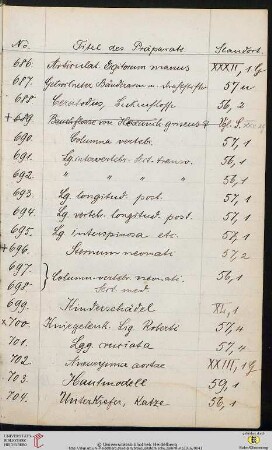 No. Titel des Präparats Standort.
686. Articulat. digitorum manus XXXII, 1
687. Getrocknetes 57
688 Ceratodus, 56, 2
+ 689. Bauchflosse von griseus Vgl. S.
690. Columna vertebr. 57, 1
691. Lig. intervertebr. Sct. transv. 56, 1
692 " " " 56, 1
693. Lg. longitud. post. 57, 1
694. Lg. vertebr. longitud. post. 57, 1
695. Lg. interspinosa etc. 57, 1
+ 696. Sternum neonati 57, 2
697. Column. vertebr. neonati. 56, 1
698. Sct. med.
699. Kinderschädel XL, 1
x 700. Kniegelenk. Lig. Roberti 57, 4
701. Lgg. cruciata 57, 4
702 Aneurysma aortae XXIII, 1
703. Hautmodell 59, 1
704. Unterkiefer, Katze 56, 1
UNIVERSITÄTS-BIBLIOTHEK HEIDELBERG
© Universitätsbibliothek Heidelberg